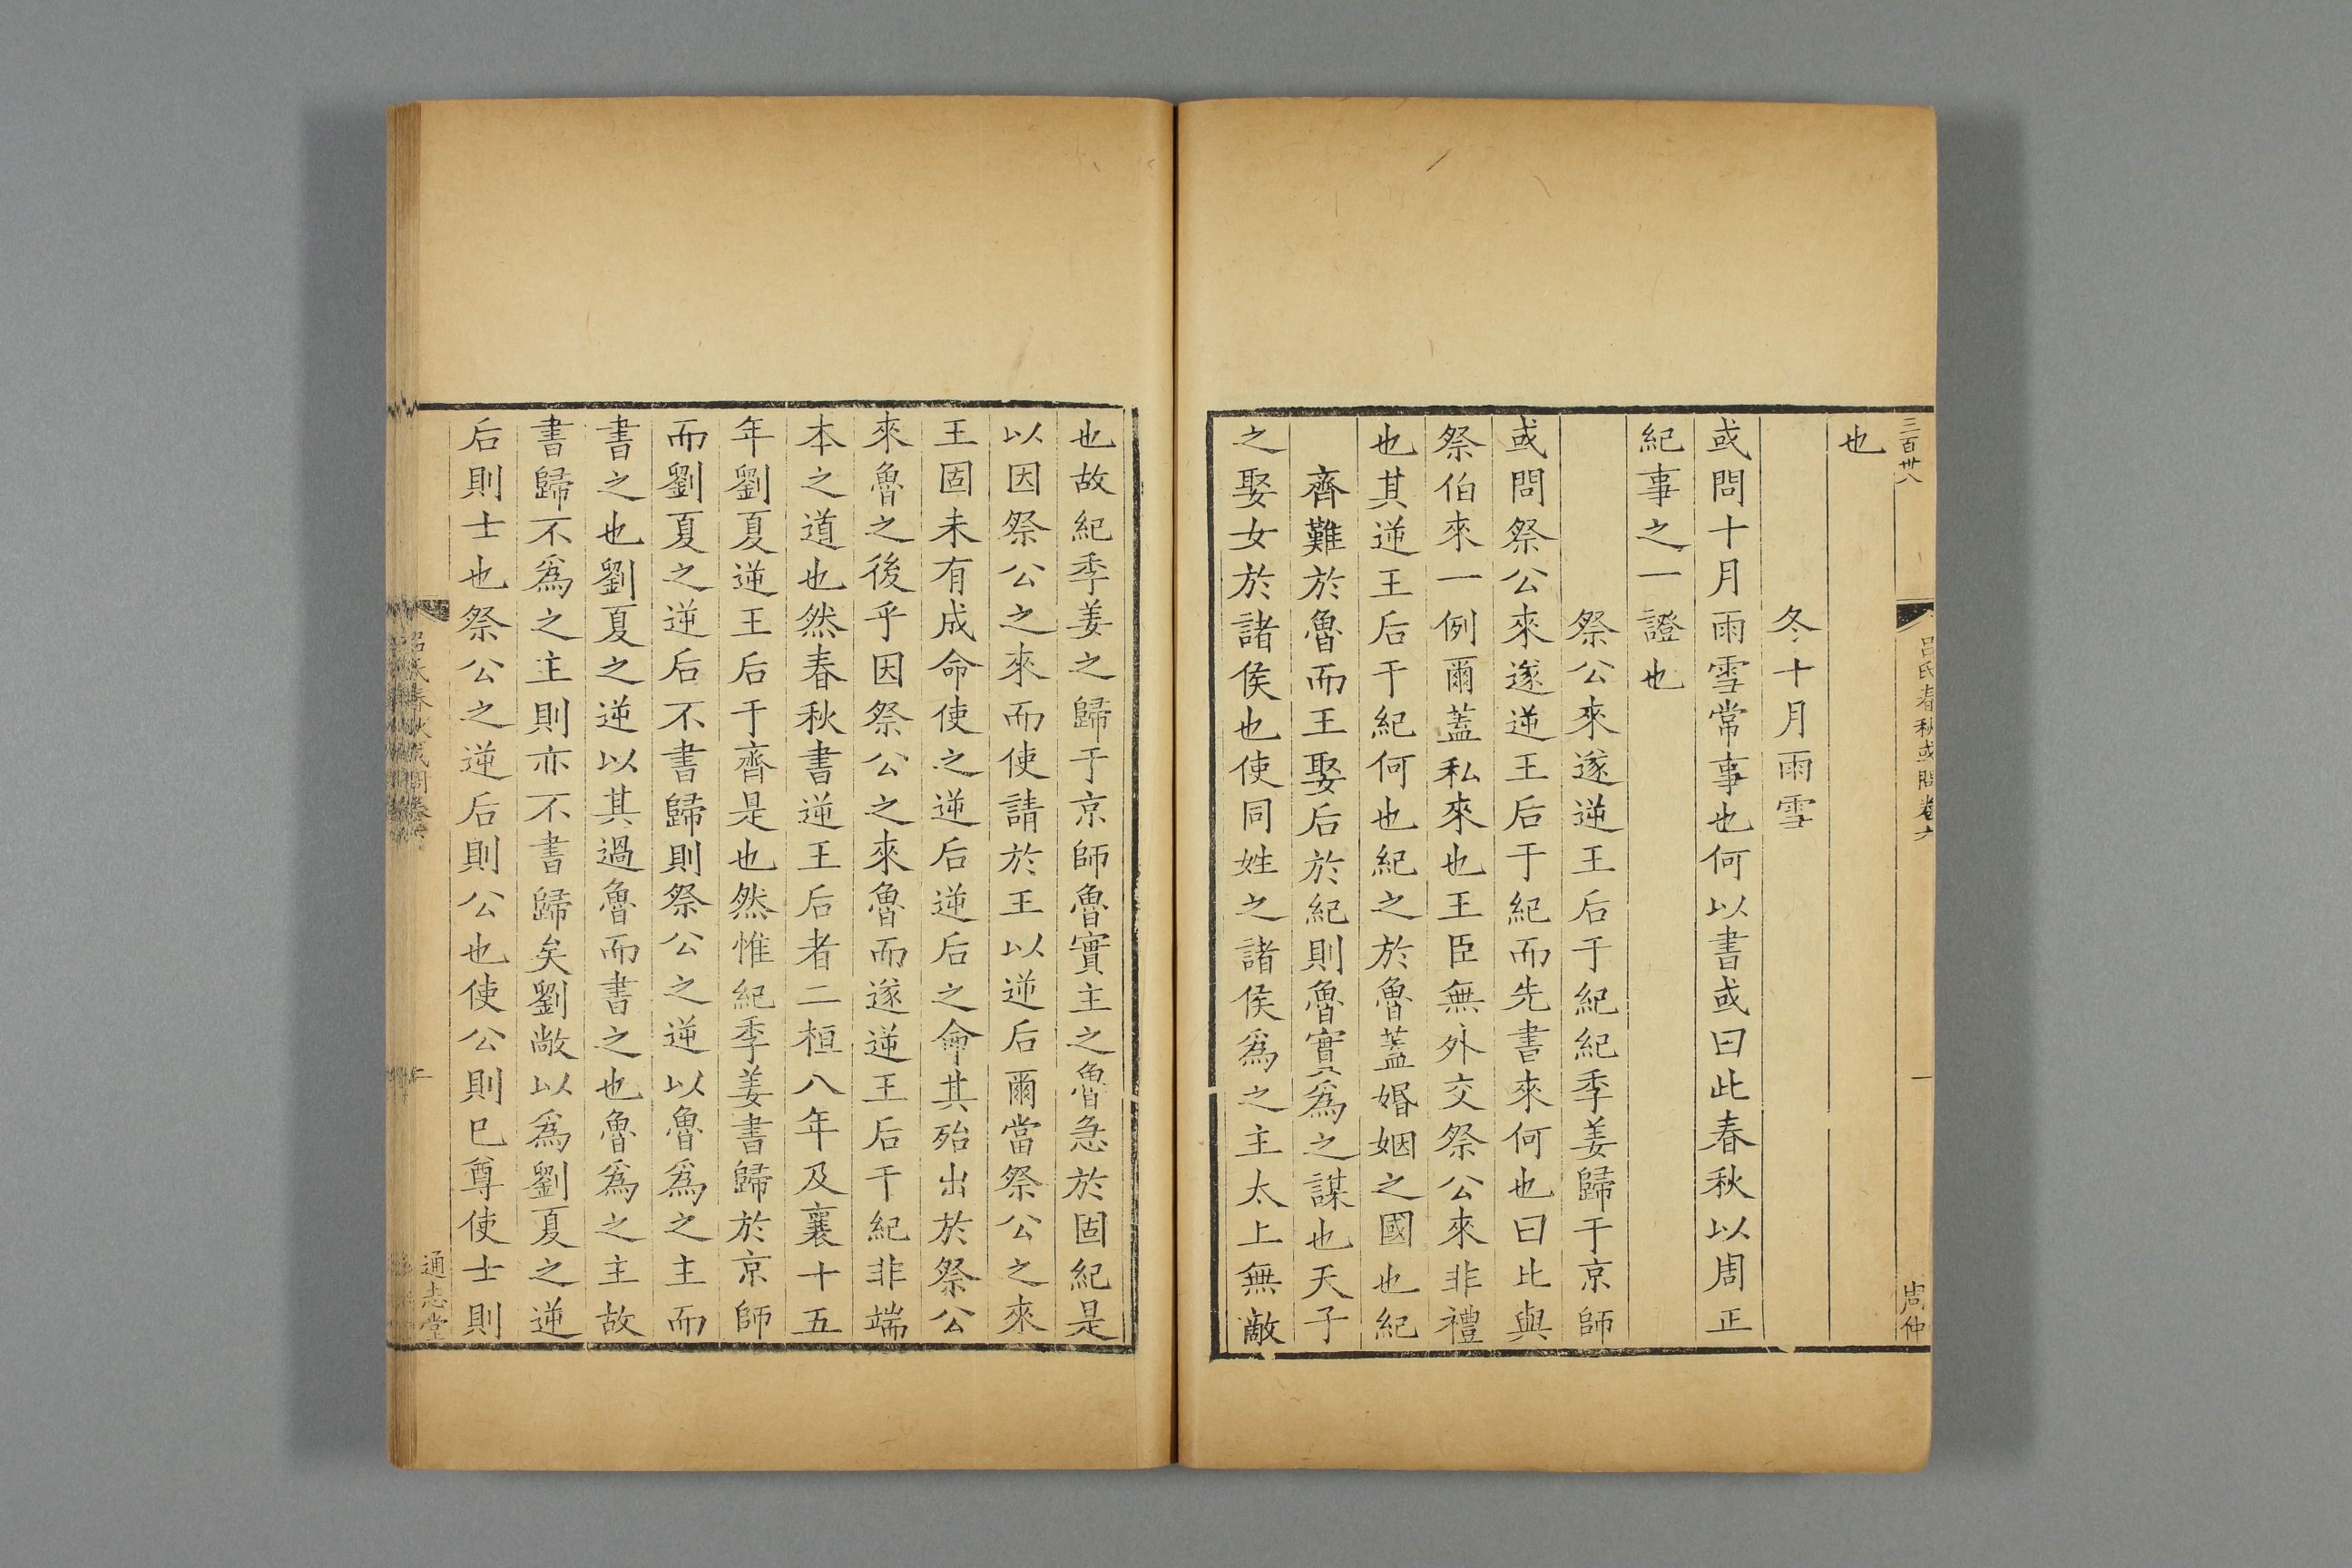 三百卅八
呂氏春秋或問卷六
一
周仲
也
冬十月雨雪
或問十月雨雪常事也何以書或曰此春秋以周正
紀事之一證也
祭公來遂逆王后于紀紀季姜歸于京師
或問祭公來遂逆王后于紀而先書來何也曰比與
祭伯來一例爾蓋私來也王臣無外交祭公來非禮
也其逆王后于紀何也紀之於魯蓋婚姻之國也紀
齊難於魯而王娶后於紀則魯實爲之謀也天子
之娶女於諸侯也使同姓之諸侯爲之主太上無敵
也故紀季姜之歸于京師魯實主之魯急於固紀是
以因祭公之來而使請於王以逆后爾當祭公之來
王固未有成命使之逆后逆后之命其殆出於祭公
來魯之後乎因祭公之來魯而遂逆王后于紀非端
本之道也然春秋書逆王后者二桓八年及襄十五
年劉夏逆王后于齊是也然惟紀季姜書歸於京師
而劉夏之逆后不書歸則祭公之逆以魯爲之主而
書之也劉夏之逆以其過魯而書之也魯爲之主故
書歸不爲之主則亦不書歸矣劉敞以爲劉夏之逆
后則士也祭公之逆后則公也使公則已尊使士則
呂氏春秋或問卷六
通志堂